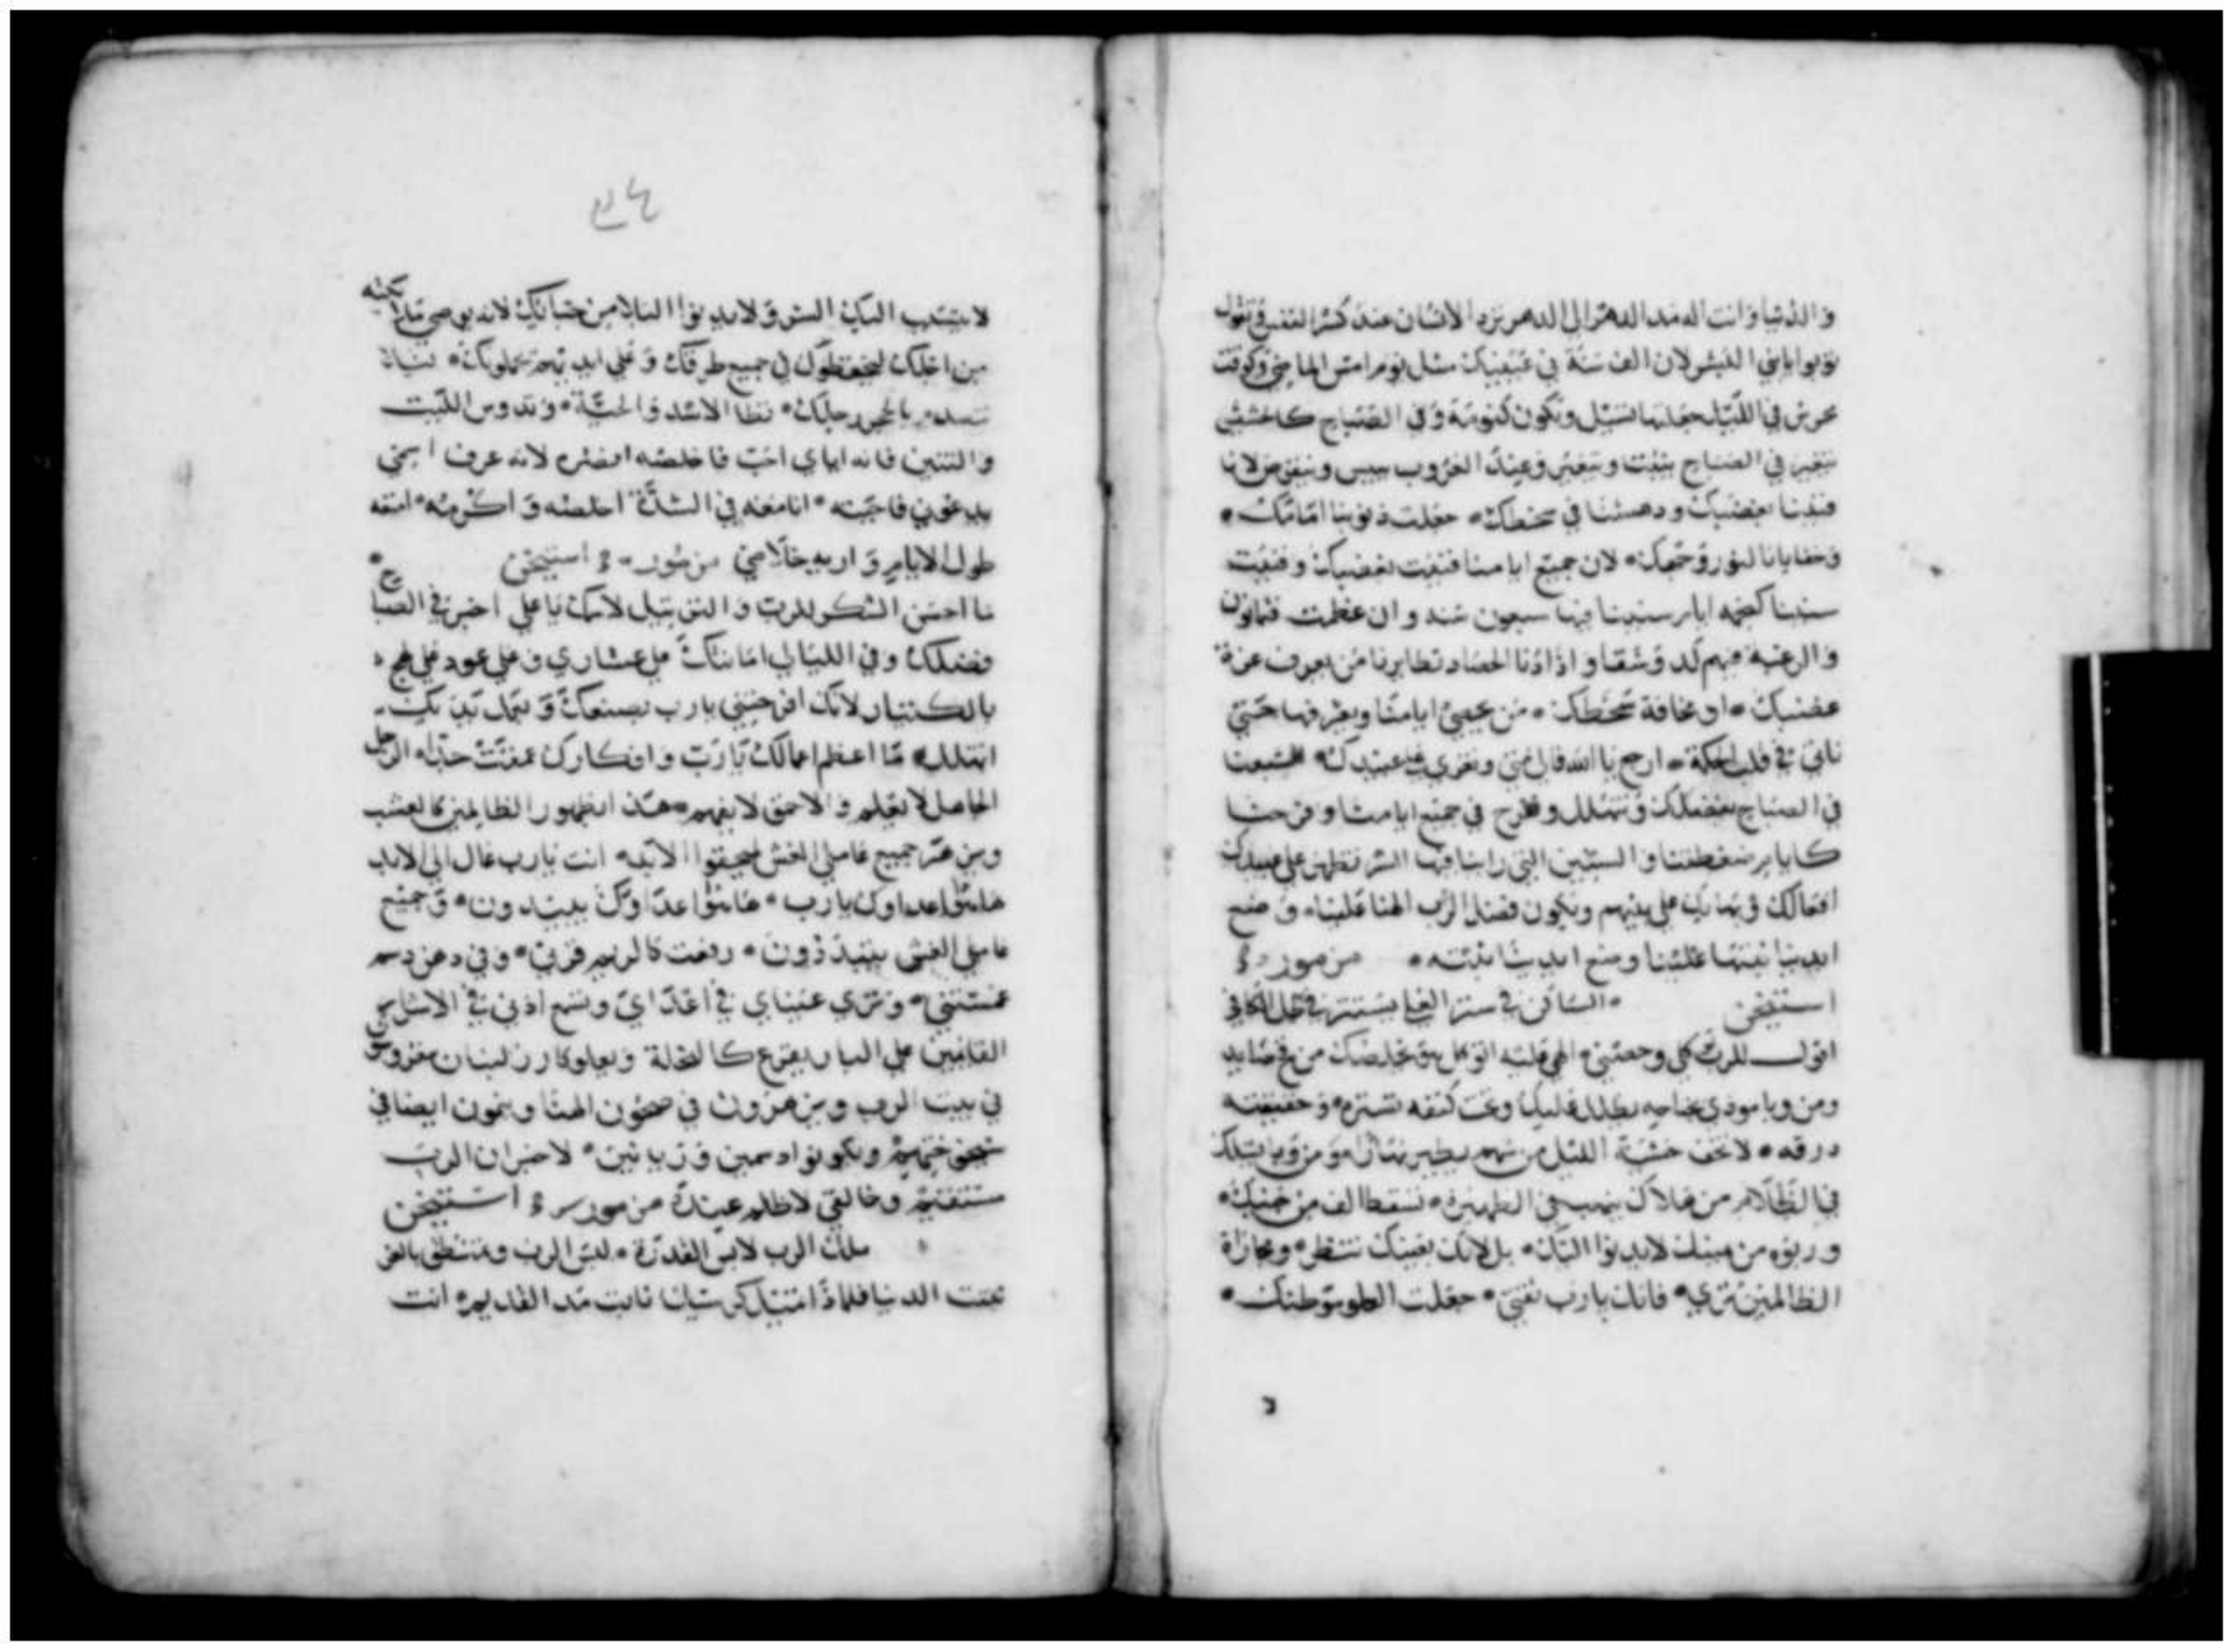 والدنيا وانت اله منذ الدهر الى الدهر ترد الانسان عند كسر النفس وتقول
توبوا يابني البشر لان الف سنة في عينيك مثل يوم امس الماضي وكوقت
محرس في الليل جعلتها تسيل وتكون كنومة وفي الصباح كاعشب
يتغير في الصباح ينبت ويتغير وعند الغروب ييبس وينقرض لانا
فنينا بغضبك ودهشنا في سخطك جعلت ذنوبنا امامك
وخفايانا لنور وجهك لان جميع ايامنا فنيت بغضبك وفنيت
سنينا كعجه ايام سنينا فيها سبعون سنه وان عظمت فثمانون
والرغبة فيهم كد وشقا واذا دنا الحصاد تطايرنا من يعرف عزة
غضبك او مخافة سخطك من يحصي ايامنا ويعرفها حتى
ناتي في قلب الحكمة ارجع يا الله فالى متى وتعزي عبيدك
في الصباح بفضلك ونتهلل ونفرح في جميع ايامنا وفرحنا
كايام ضغطتنا والسنين التي راينا فيها الشر تظهر على عبيدك
افعالك وبهاك على بنيهم ويكون فضل الرب الهنا علينا وصنع
ايدينا ثبتها علينا وصنع ايدينا ثبته مزمور
الساكن في ستر العليا يستتر في ظل الكافي
اقول للرب كلي وحصني الهي عليه اتوكل هو يخلصك من فخ صايد
ومن وبا موذي بجناحه يظلل عليك وتحت كنفه تستتر وحقيقته
درقه لا تخف خشية الليل من سهم يطير نهارا ومن وبا يسلك
في الظلام من هلاك ينهب في الظهيرة تسقط الف من جنبك
وربوه من يمينك لا يدنوا اليك بل لانك بعينك تنظر ومجازاة
الظالمين ترى فانك يارب ثقتي جعلت العلو موطنك
لا ينتسب اليك الشر ولا يدنوا البلا من خبائك لانه يوصي ملايكته
من اجلك ليحفظوك في جميع طرقك وعلى ايديهم يحملونك
تصدم بالحجر رجلك تطا الاسد والحية وتدوس الليث
والتنين فانه اياي احب فاخلصه انصره لانه عرف اسمي
يدعوني فاجيبه انا معه في الشدة اخلصه واكرمه امتعه
طول الايام واريه خلاصي مزمور
ما احسن الشكر للرب والترتيل لاسمك يا علي اخبر في الصبا
ح
فضلك وفي الليالي امانتك على عشاري وعلى عود
بالكنتار لانك افرحتني يارب بصنعك وبعمل يديك
اتهلل ما اعظم اعمالك يا رب وافكارك عمقت جدا الرجل
الجاهل لا يعلم والاحمق لا يفهم هذا بظهور الظالمين كالعشب
ويزهر جميع عاملي الغش ليمحقوا الى الابد انت يارب عال الى الابد
هاهوذا اعداوك يارب هاهوذا اعداوك يبيدون وجميع
عاملي الغش يتبددون رفعت كالريم قرني وفي دهن دسم
غمستني وترى عيناي في اعداي وتسمع اذني في الاشرار
القايمين علي البار يفرع كالنخلة ويعلو كارز لبنان مغروس
في بيت الرب ويزهرون في صحون الهنا وينمون ايضا في
شيخوختهم ويكونوا دسمين وريانين لاخبر ان الرب
مستقيم وخالقي لا ظلم عنده مزمور
ملك الرب لابس القدرة لبس الرب وتنطق بالعز
تثبت الدنيا فلا ثابت منذ القديم انت